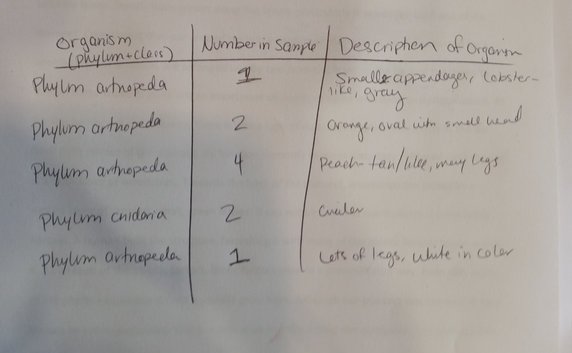 Organism (phylum+class) Number in Sample Description of Organism
Phylum artnopeda 1 Small appendages, lobster-like, gray
Phylum artnopeda 2 Orange, oval with small head
Phylum artnopeda 4 Peach-tan/like, many legs
Phylum cnidaria 2
Phylum artnopeda 1 Lots of legs, white in color